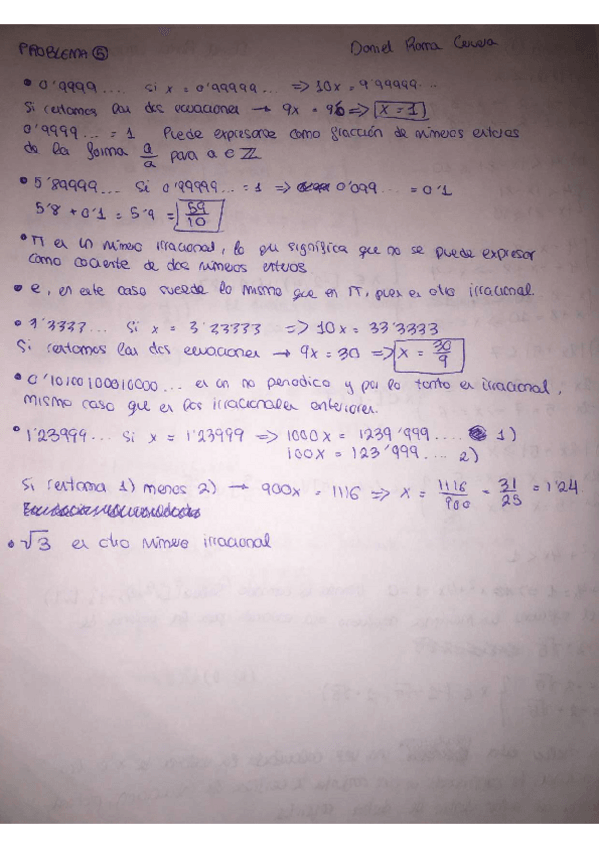 PROBLEMA ⑤ Daniel Roma Cervera
• 0'9999.... Si x = 0'99999... => 10x = 9'99999...
Si restamos las dos ecuaciones → 9x = 9 => x = 1
0'9999... = 1 Puede expresarse como fracción de números enteros
de la forma a/a para a ∈ Z
• 5'89999... Si 0'99999... = 1 => 0'099... = 0'1
5'8 + 0'1 = 5'9 = 59/10
• π es un número irracional, lo que significa que no se puede expresar
como cociente de dos números enteros
• e, en este caso sucede lo mismo que en π, pues es otro irracional.
• 3'3333... Si x = 3'33333 => 10x = 33'3333
Si restamos las dos ecuaciones → 9x = 30 => x = 30/9
• 0'10100100010000... es un no periodico y por lo tanto es irracional,
mismo caso que en los irracionales anteriores.
• 1'23999... Si x = 1'23999 => 1000x = 1239'999.... 1)
100x = 123'999... 2)
Si restamos 1) menos 2) → 900x = 1116 => x = 1116/900 = 31/25 = 1'24
• √3 es otro número irracional